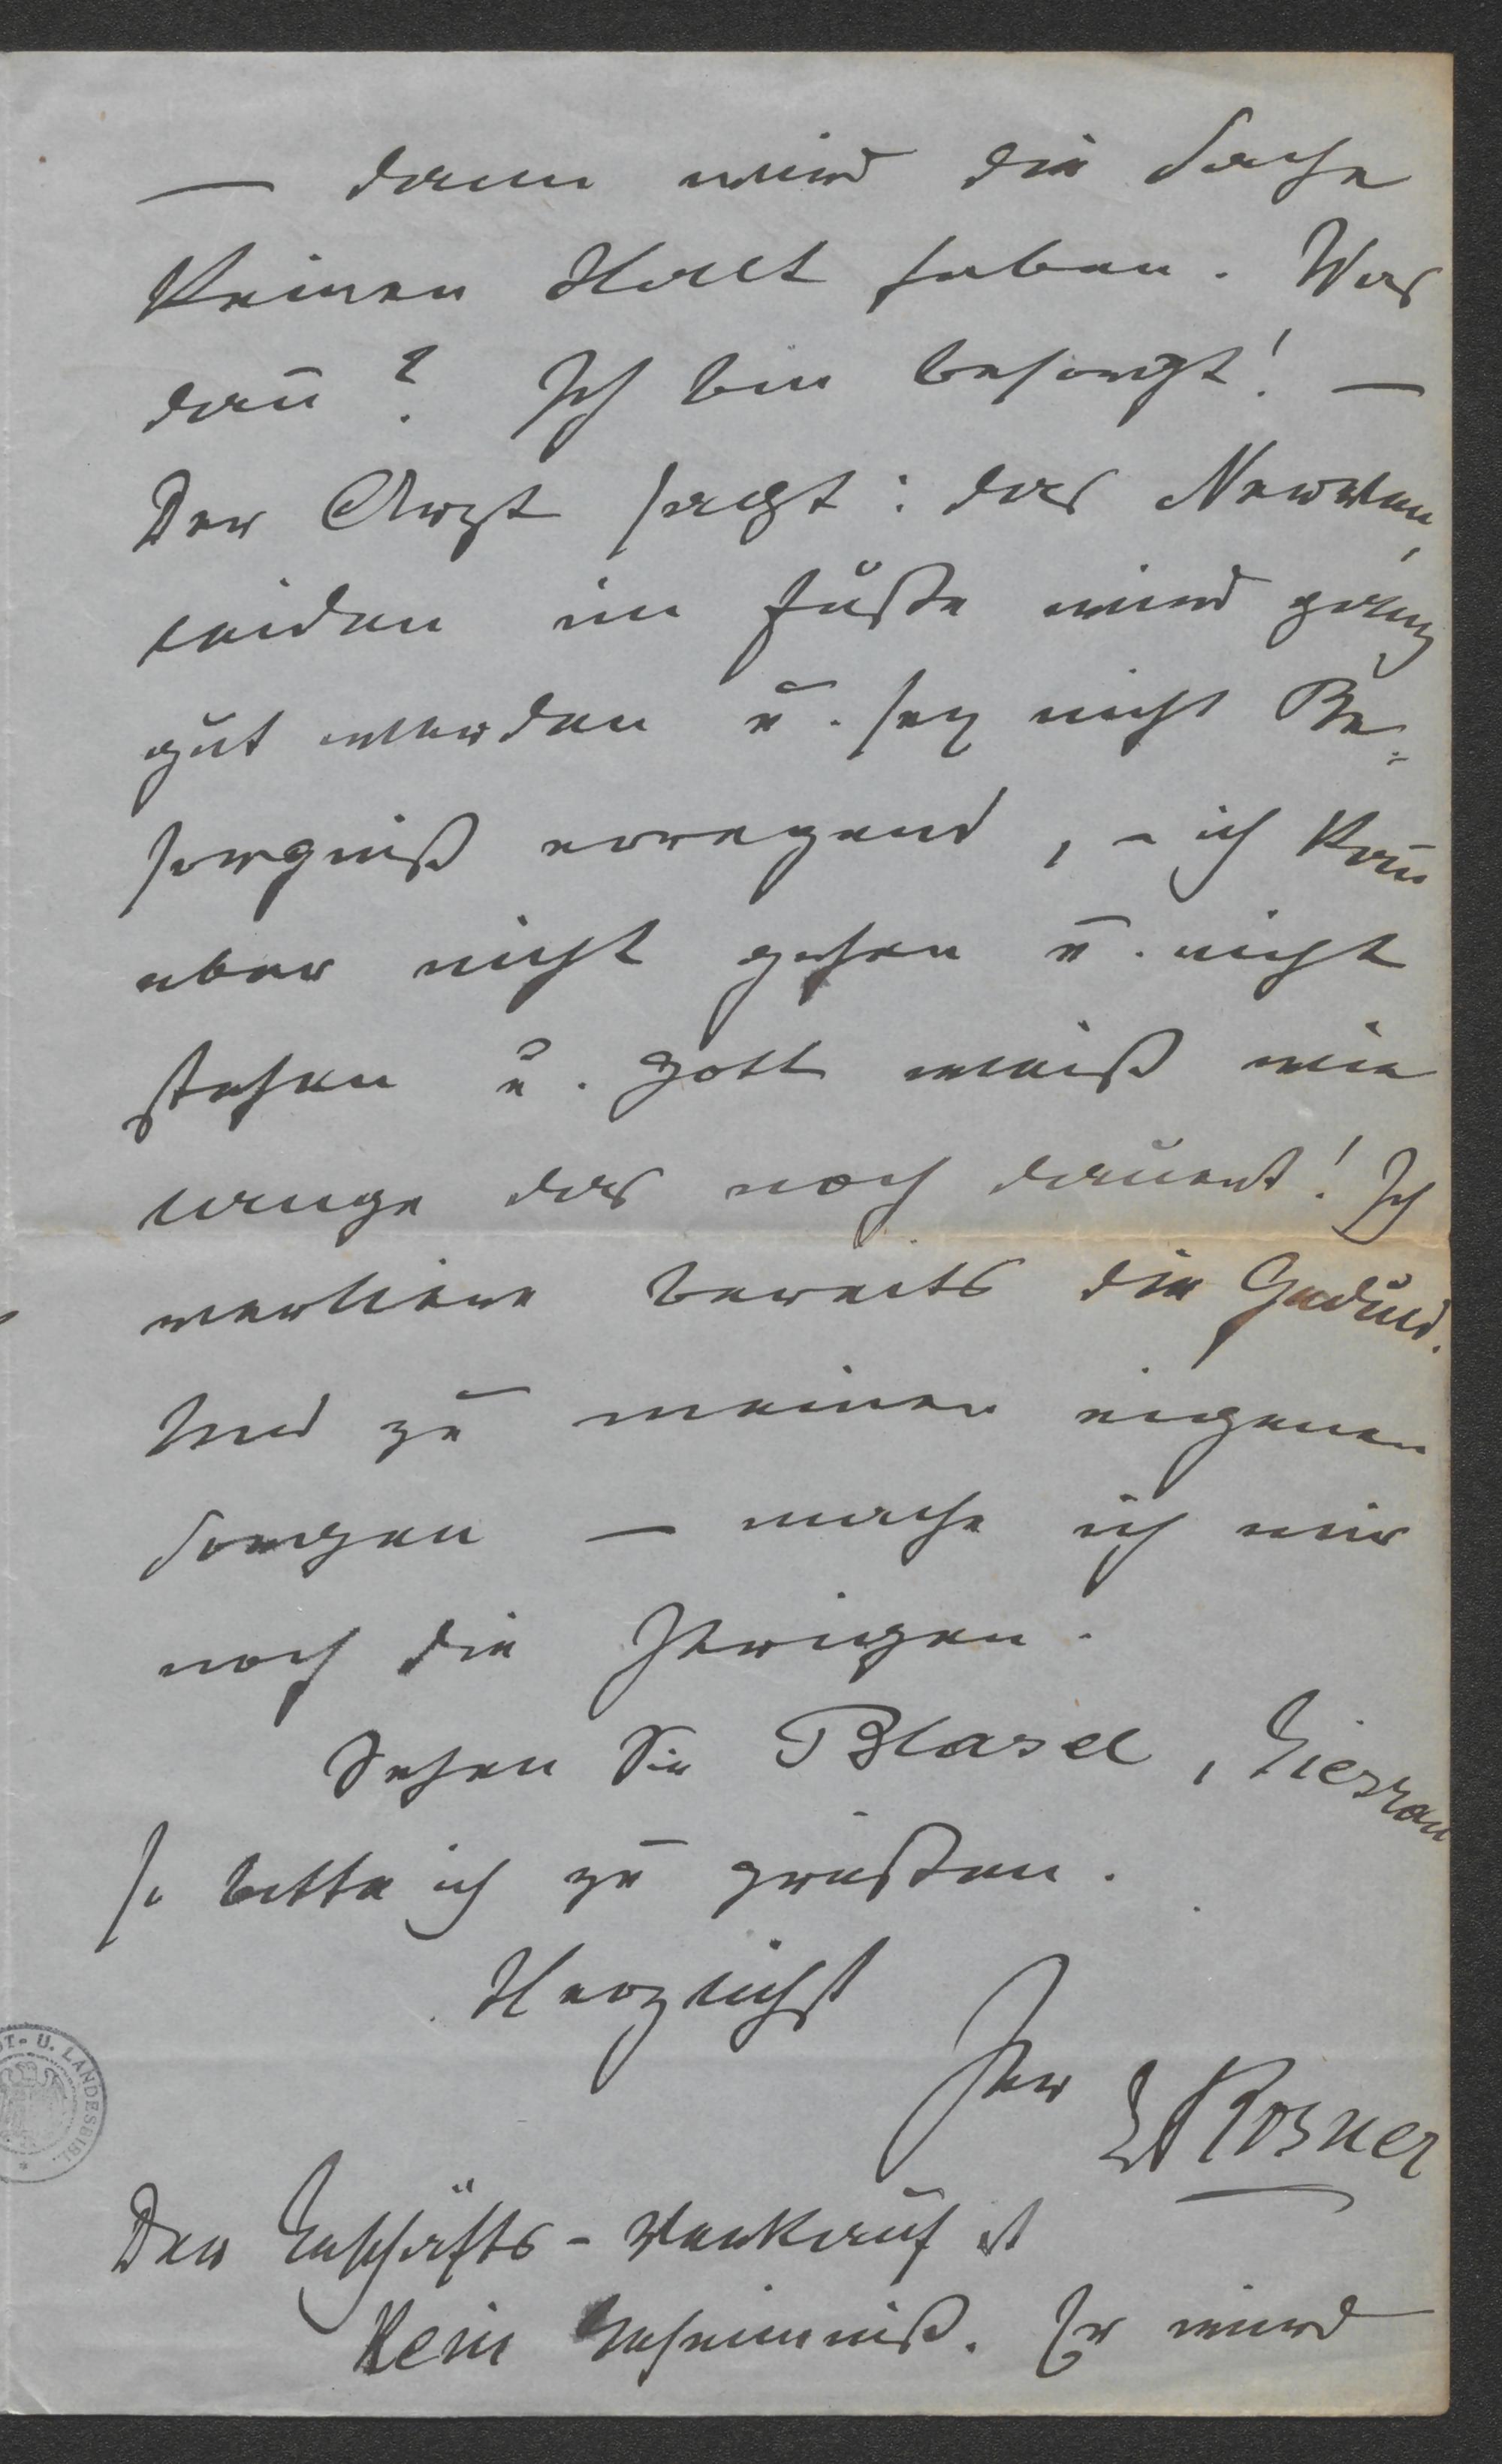 — dann wird die Sache
keinen Halt haben. Was
dan̄? Ich bin besorgt! —
Der Arzt sagt: das Nerven-
leiden im Fuße wird ganz
gut werden u. sey nicht Be-
sorgniß erregend, - ich kan̄
aber nicht gehen u. nicht
stehen u. Gott weiß wie
lange das noch dauert! Ich
verliere bereits die Geduld.
Und zu meinen eigenen
Sorgen — mache ich mir
noch die Ihrigen.
Sehen Sie Blasel,
so bitte ich zu grüßen.
Herzlichst
Ihr
Rosner
Der Geschäfts-Verkauf ist
kein Geheimniß. Er wird
U. LANDESBIBL.